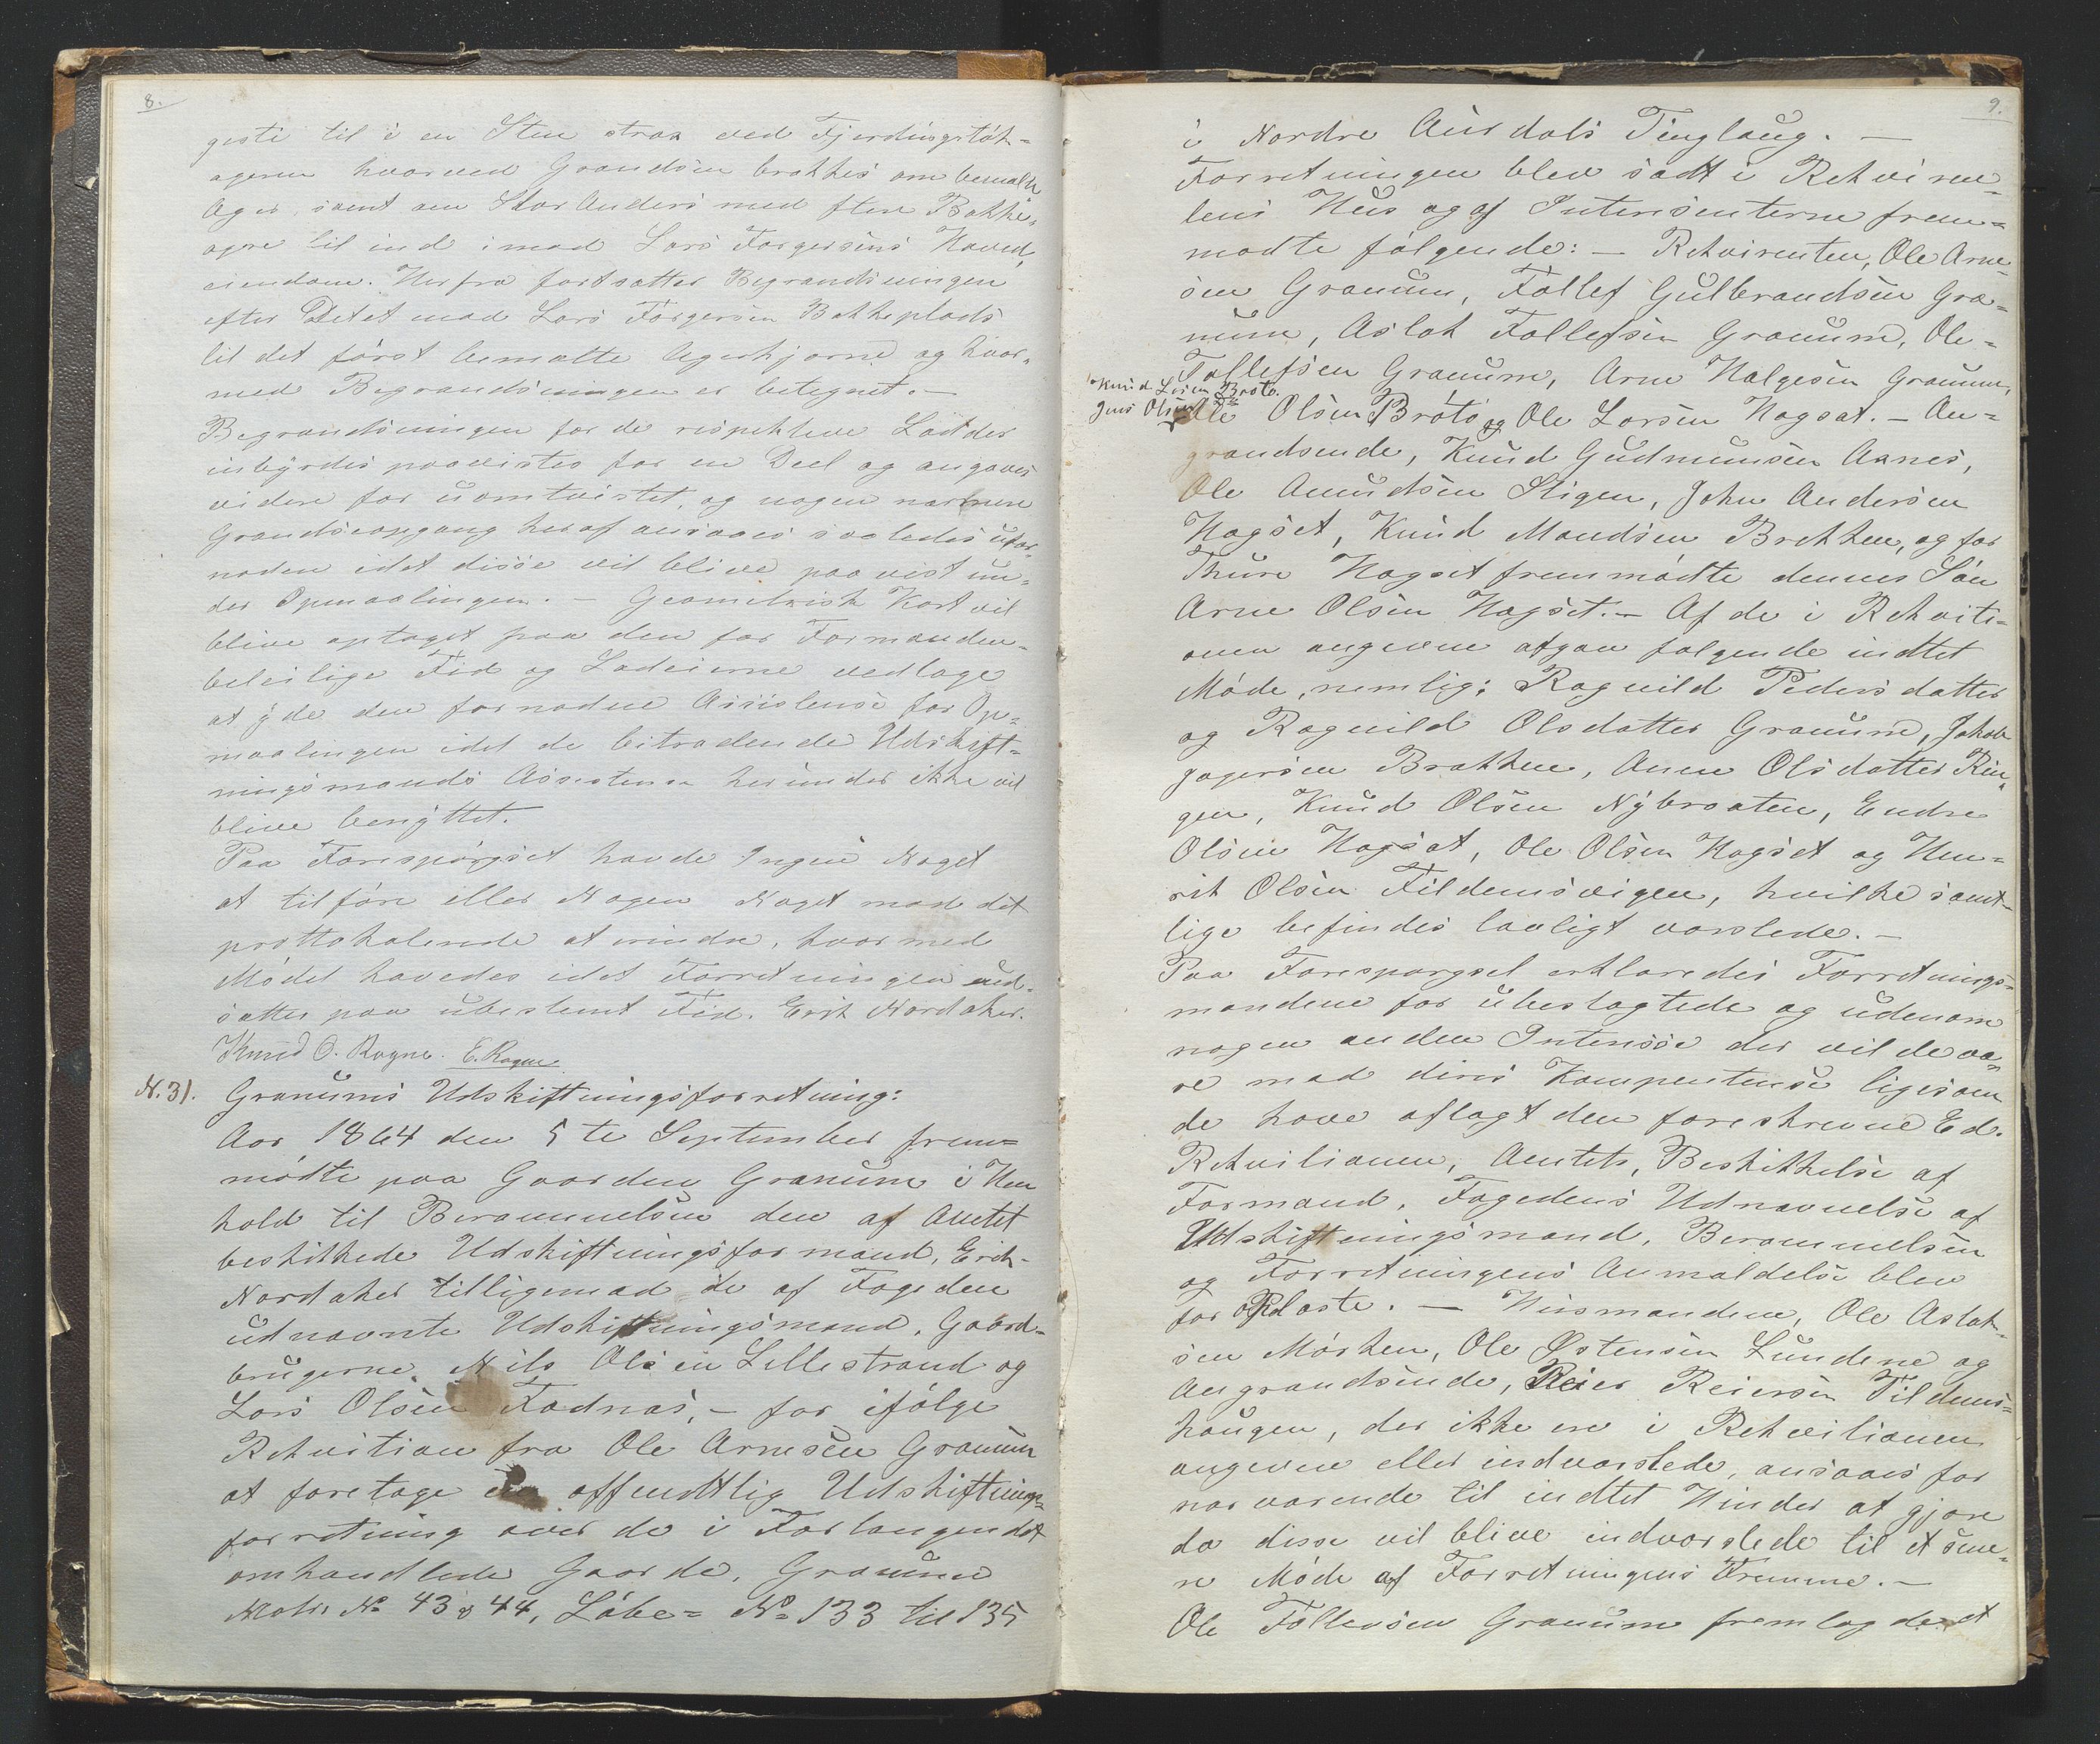 8.
geste til i en Sten strax ved Fjerdingstök-
ageren hvorved Grændsen brækkes om bemalte
Ager, samt om Stor Anders med flere Bække,
agre til ind imod Lars Torgersens Hoved,
eiendom. Herfra fortsættes Begrændsningen
efter Delet mod Lars Torgersen Bækkeplads
til det först bemælte Agerhjörne og hvor-
med Begrændsningen er betegnet. -
Begrændsningen for de respektive Lodder
inbyrdes paavistes for en Deel og angaves
videre for uomtvistet, og nogen nærmere
Grændseopgang heraf ansaaes saaledes ufor
nøden idet disse vil blive paavist un-
der Opmaalingen. - Geometrisk Kart vil
blive optaget paa den for Formanden
beleilige Tid og Lodeierne vedtoge
at yde den fornødne Assistense for Op-
maalingen idet de beitrædende Udskift-
ningsmænds Assistense herunder ikke vil
blive benyttet.
Paa Forespörgsel havde Ingen Noget
at tilföre eller Nogen Noget mod det
prottokolerede at erindre, hvormed
Mödet hævedes idet Forretningen ud-
sættes paa ubestemt Tid. Erik Nordaker.
Knud O. Rogne. E. Rogne
N. 31. Granums Udskiftningsforretning:
Aar 1864 den 5te September frem-
mödte paa Gaarden Granum i Hen
hold til Berammelsen den af Amtet
beskikkede Udskiftningsformand, Erik
Nordaker tilligemed de af Fogeden
udnævnte Udskiftningsmænd, Gaard-
brugerne Nils Olsen Lillestrand og
Lars Olsen Fodnæs, - for ifölge
Rekvition fra Ole Arnesen Granum
at foretage en offendtlig Udskiftnings-
forretning over de i Forlangendet
omhandlede Gaarde, Granum
Matr. No 43 & 44, Löbe- No 133 til 135
9.
i Nordre Aurdals Tinglaug. -
Forretningen blev sadt i Rekviren-
tens Hus og af Interesenterne frem-
mödte fölgende: - Rekvirenten, Ole Arne-
sen Granum, Tollef Gulbrandsen Gra-
num, Aslak Tollefsen Granum, Ole
Tollefsen Granum, Arne Halgesen Granum,
Knud Larsen Bröto.
Jens Olsen Do
Ole Olsen Bröto og Ole Larsen Hagset. - An-
grændsende, Knud Gudmunsen Aanes,
Ole Amundsen Stigen, John Andersen
Hagset, Knud Mandsen Brekken, og for
Thure Hagset fremmödte dennes Sön
Arne Olsen Hagset. - Af de i Rekviti-
onen angivne afgav fölgende indtet
Möde, nemlig: Ragnild Pedersdatter
og Ragnild Olsdatter Granum, Jakob
Jogersen Brækken, Anne Olsdatter Rin-
gen, Knud Olsen Nybraaten, Endre
Olsen Hagset, Ole Olsen Hagset og Hen-
rik Olsen Tildemsvigen, hvilke samt-
lige befindes lovligt varslede. -
Paa Forespørgsel erklæredes Forretnings-
mændene for ubeslægtede og udenom
nogen anden Interesse der vilde væ-
re mod deres Kompentense ligesom
de have aflagt den foreskrevne Ed.
Rekvitionen, Amtets, Beskikkelse af
Formand, Fogedens Udnævnelse af
Udskiftningsmænd, Berammelsen
og Forretningens Anmeldelse blev
for oplæste. - Husmændene, Ole Aslak-
sen Mörken, Ole Østensen Lundene og
Angrændsende, Reier Reiersen Tildems-
haugen, der ikke ere i Rekvitionen
angivne eller indvarslede, ansaaes for
nærværende til indtet Hinder at gjøre
da disse vil blive indvarslede til et sene-
re Möde af Forretningens Fremme. -
Ole Tollevsen Granum fremlagde et